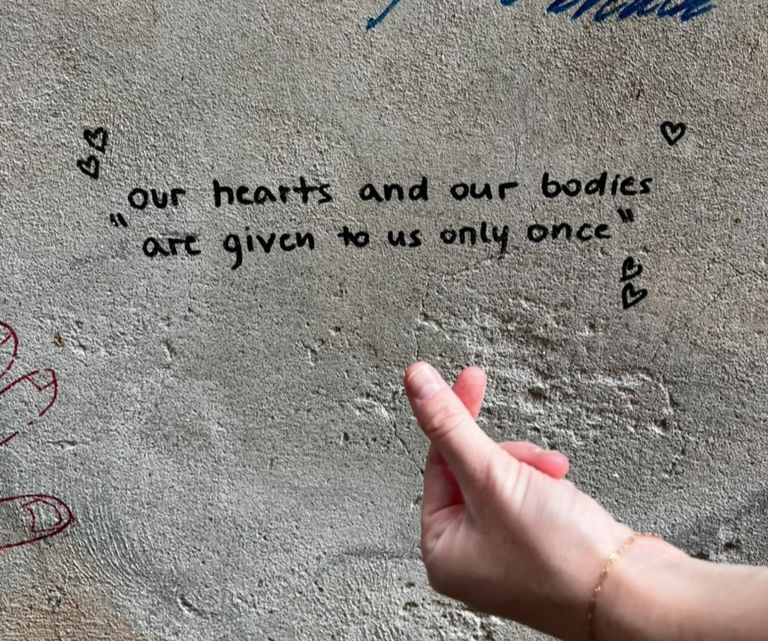 our hearts and our bodies
"are given to us only once"